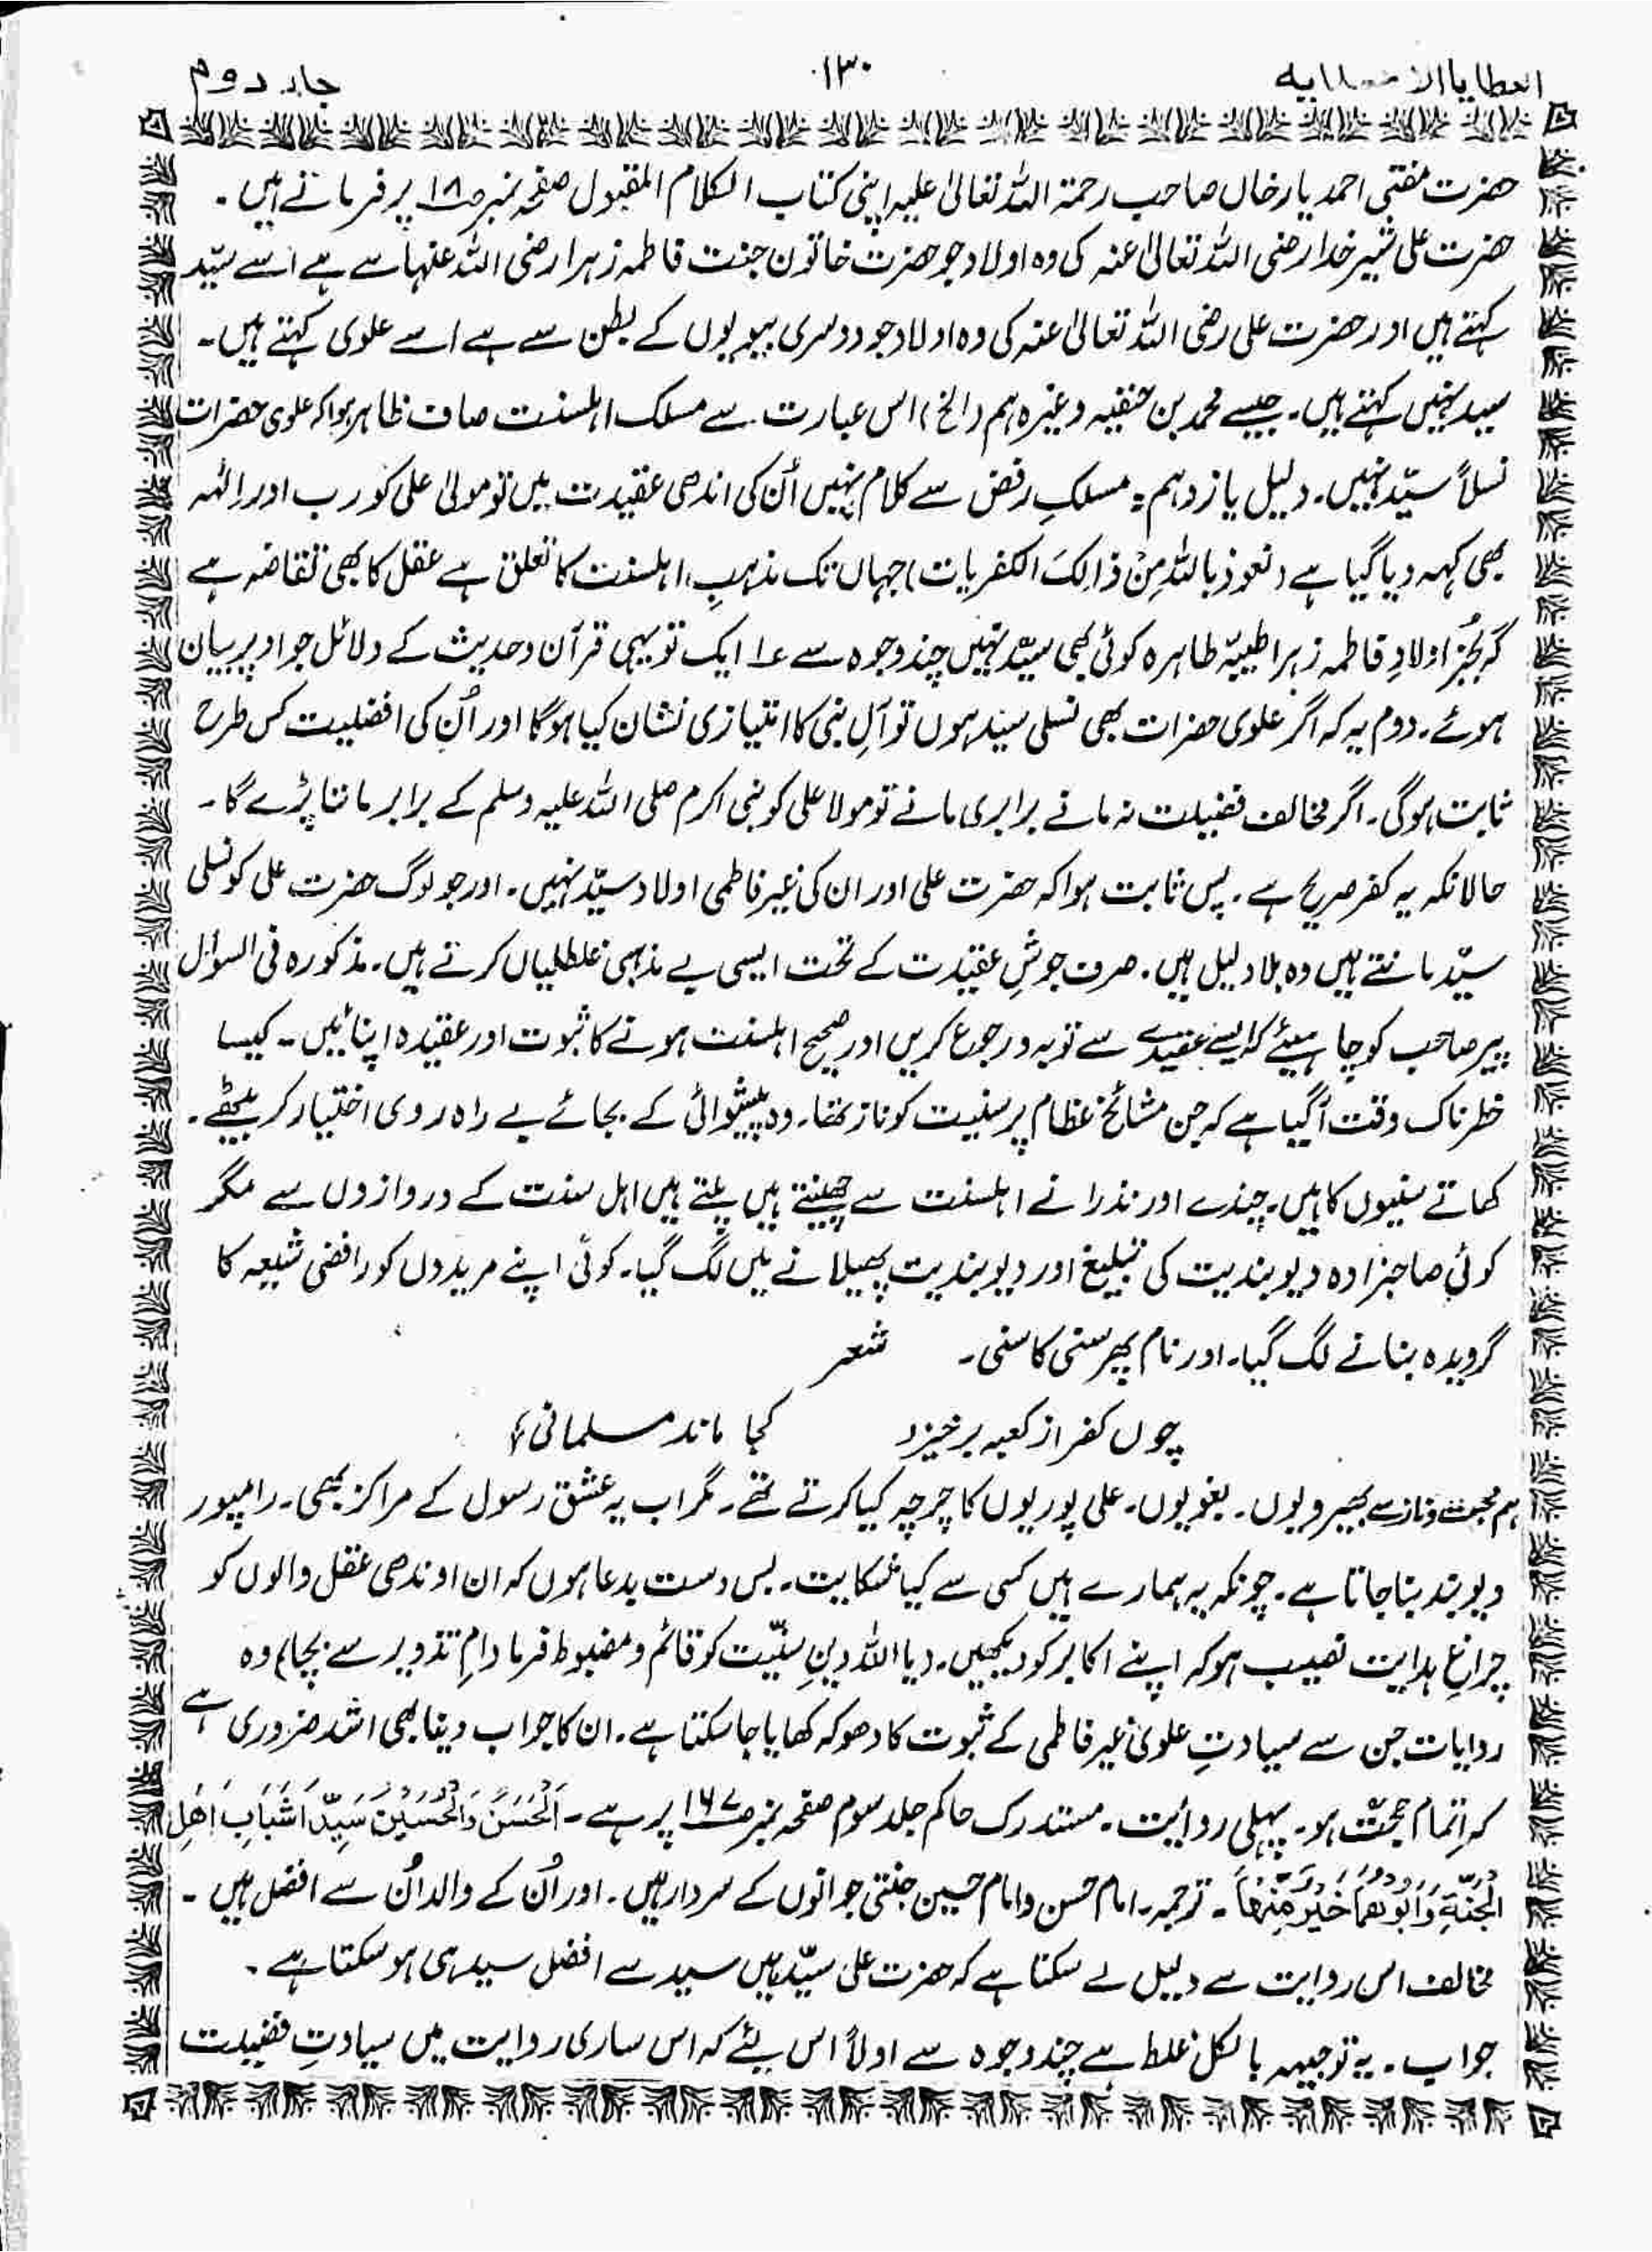 العطایا الا
۱۳۰
جلد دوم
حضرت مفتی احمد یار خاں صاحب رحمۃ اللہ تعالیٰ علیہ اپنی کتاب الکلام المقبول صفحہ نمبر ۱۸ پر فرماتے ہیں۔
حضرت علی شیر خدا رضی اللہ تعالیٰ عنہ کی وہ اولاد جو حضرت خاتون جنت فاطمہ زہرا رضی اللہ عنہا سے ہے اسے سیّد
کہتے ہیں اور حضرت علی رضی اللہ تعالیٰ عنہ کی وہ اولاد جو دوسری بیویوں کے بطن سے ہے اسے علوی کہتے ہیں۔
سید نہیں کہتے ہیں۔ جیسے محمد بن حنفیہ وغیرہ ہم (الخ) اس عبارت سے مسلک اہلسنت صاف ظاہر ہوا کہ علوی حضرات
نسلاً سیّد نہیں۔ دلیل یازدہم: مسلکِ رفض سے کلام نہیں اُن کی اندھی عقیدت میں تو مولیٰ علی کو رب اور اِلٰہ
بھی کہہ دیا گیا ہے (نعوذ باللہ مِنْ ذَالِکَ الکفریات) جہاں تک مذہبِ اہلسنت کا تعلق ہے عقل کا بھی تقاضہ ہے
کہ بجُز اولادِ فاطمہ زہرا طیبہّ طاہرہ کوئی بھی سیّد نہیں چند وجوہ سے ۱؎ ایک تو یہی قرآن و حدیث کے دلائل جو اوپر بیان
ہوئے۔ دوم یہ کہ اگر علوی حضرات بھی نسلی سید ہوں تو آلِ نبی کا امتیازی نشان کیا ہوگا اور اُن کی افضلیت کس طرح
ثابت ہوگی۔ اگر مخالف فضیلت نہ مانے برابری مانے تو مولا علی کو نبی اکرم صلی اللہ علیہ وسلم کے برابر ماننا پڑے گا۔
حالانکہ یہ کفر صریح ہے۔ پس ثابت ہوا کہ حضرت علی اور ان کی غیر فاطمی اولاد سیّد نہیں۔ اور جو لوگ حضرت علی کو نسلی
سیّد مانتے ہیں وہ بلا دلیل ہیں۔ صرف جوشِ عقیدت کے تحت ایسی بے مذہبی غلطیاں کرتے ہیں۔ مذکورہ فی السوال
پیر صاحب کو چاہیئے کہ ایسے عقیدے سے توبہ و رجوع کریں اور صحیح اہلسنت ہونے کا ثبوت اور عقیدہ اپنائیں۔ کیسا
خطرناک وقت آگیا ہے کہ جن مشائخ عظام پر سنیت کو ناز تھا۔ وہ پیشوائی کے بجائے بے راہ روی اختیار کر بیٹھے۔
کھاتے سنیوں کا ہیں۔ چندے اور نذرانے اہلسنت سے چھینتے ہیں پلتے ہیں اہل سنت کے دروازوں سے مگر
کوئی صاحبزادہ دیوبندیت کی تبلیغ اور دیوبندیت پھیلانے میں لگ گیا۔ کوئی اپنے مریدوں کو رافضی شیعہ کا
گرویدہ بنانے لگ گیا۔ اور نام پھر سنی کا سنی۔ شعر
چوں کفر از کعبہ برخیزد کجا ماند مسلمانی؟
ہم محبت و ناز سے بھیرویوں۔ بغویوں۔ علی پوریوں کا چرچہ کیا کرتے تھے۔ مگر اب یہ عشق رسول کے مراکز بھی۔ رامپور
دیوبند بنا جاتا ہے۔ چونکہ یہ ہمارے ہیں کسی سے کیا شکایت۔ بس دست بدعا ہوں کہ ان اوندھی عقل والوں کو
چراغِ ہدایت نصیب ہو کہ اپنے اکابر کو دیکھیں۔ (یا اللہ دینِ سنّیت کو قائم و مضبوط فرما دامِ تذویر سے بچا) وہ
روایات جن سے سیادتِ علوی غیر فاطمی کے ثبوت کا دھوکہ کھایا جا سکتا ہے۔ ان کا جواب دینا بھی اشد ضروری ہے
کہ اتمام حجت ہو۔ پہلی روائیت۔ مستدرک حاکم جلد سوم صفحہ نمبر ۱۶۷ پر ہے۔ اَلْحَسَنُ وَالْحُسَیْنُ سَیِّدَا شَبَابِ اَھْلِ
الْجَنَّۃِ وَاَبُوْھُمَا خَیْرٌ مِّنْھُمَا۔ ترجمہ۔ امام حسن و امام حسین جنتی جوانوں کے سردار ہیں۔ اور اُن کے والد اُن سے افضل ہیں۔
مخالف اس روایت سے دلیل لے سکتا ہے کہ حضرت علی سیّد ہیں سید سے افضل سید ہی ہو سکتا ہے۔
جواب۔ یہ توجیہہ بالکل غلط ہے چند وجوہ سے اولاً اس لئے کہ اس ساری روایت میں سیادتِ فضیلت